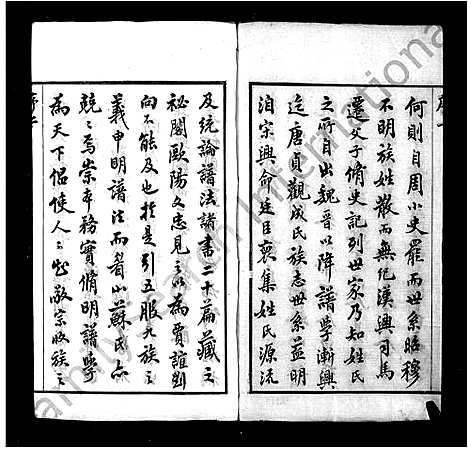 何則自周小史罷而世系昭穆
不明族姓散而無紀漢興司馬
遷父子脩史記列世家乃知姓氏
之所自出魏晉以降譜學漸興
迄唐貞觀成氏族志世系益明
洎宗興命廷臣裒集姓氏源流
及統論譜法諸書二十篇藏之
祕閣歐陽文忠見之以為賈誼劉
向不能及也於是引五服九族之
義申明譜法而眉山蘇氏亦
兢兢焉崇本務實脩明譜學
為天下侶使人人知敬宗收族之
FamilySearch International